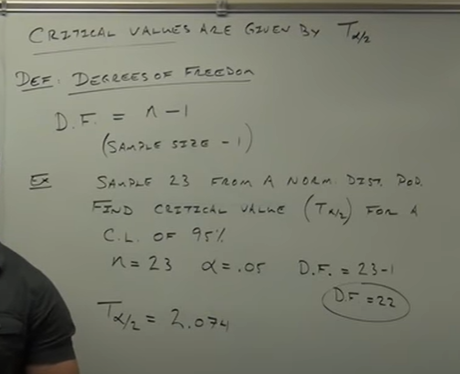 CRITICAL VALUES ARE GIVEN BY Tα/2
DEF: DEGREES OF FREEDOM
D.F. = n - 1
(SAMPLE SIZE - 1)
EX SAMPLE 23 FROM A NORM. DIST. POP.
FIND CRITICAL VALUE (Tα/2) FOR A
C.L. OF 95%
n = 23 α = .05 D.F. = 23-1
D.F = 22
Tα/2 = 2.074